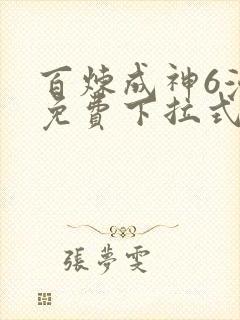 百炼成神6
免費下拉式
張夢雯